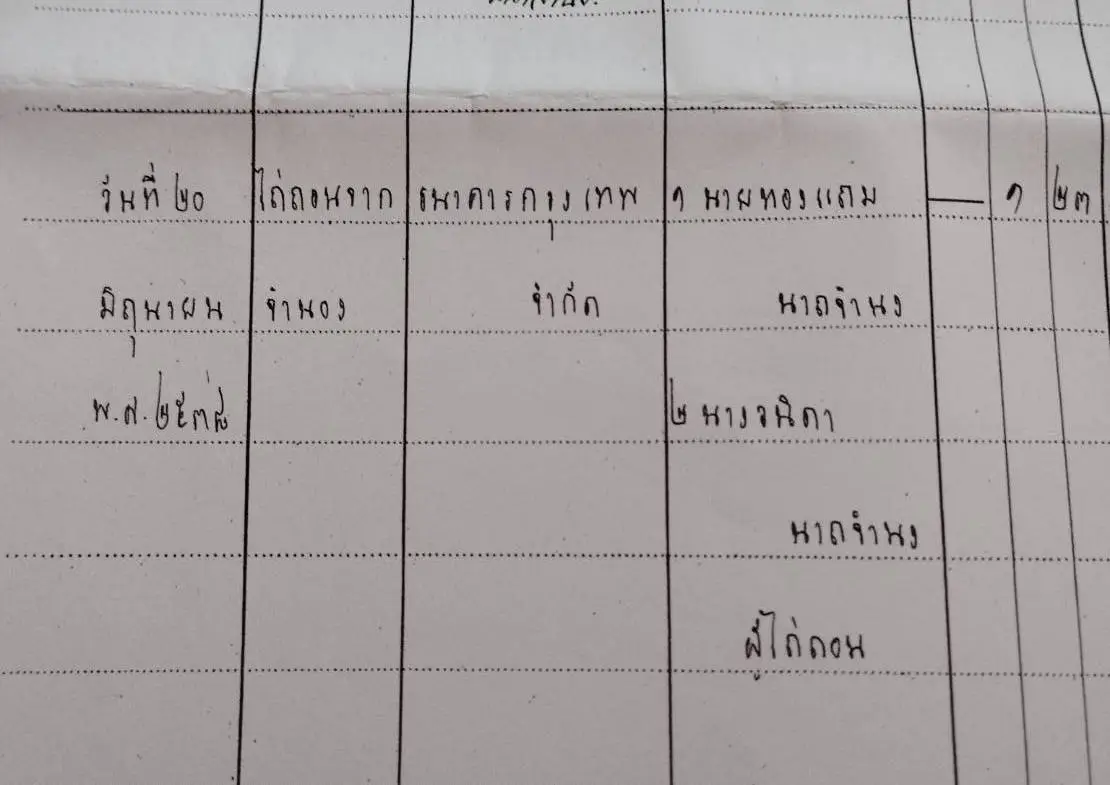 วันที่ ๒๐ ไถ่ถอนจาก ธนาคารกรุงเทพ ๑ นายทองแถม — ๑ ๒๓
มิถุนายน จำนอง จำกัด นาถจำนง
พ.ศ. ๒๕๓๘ ๒ นางวนิดา
นาถจำนง
ผู้ไถ่ถอน